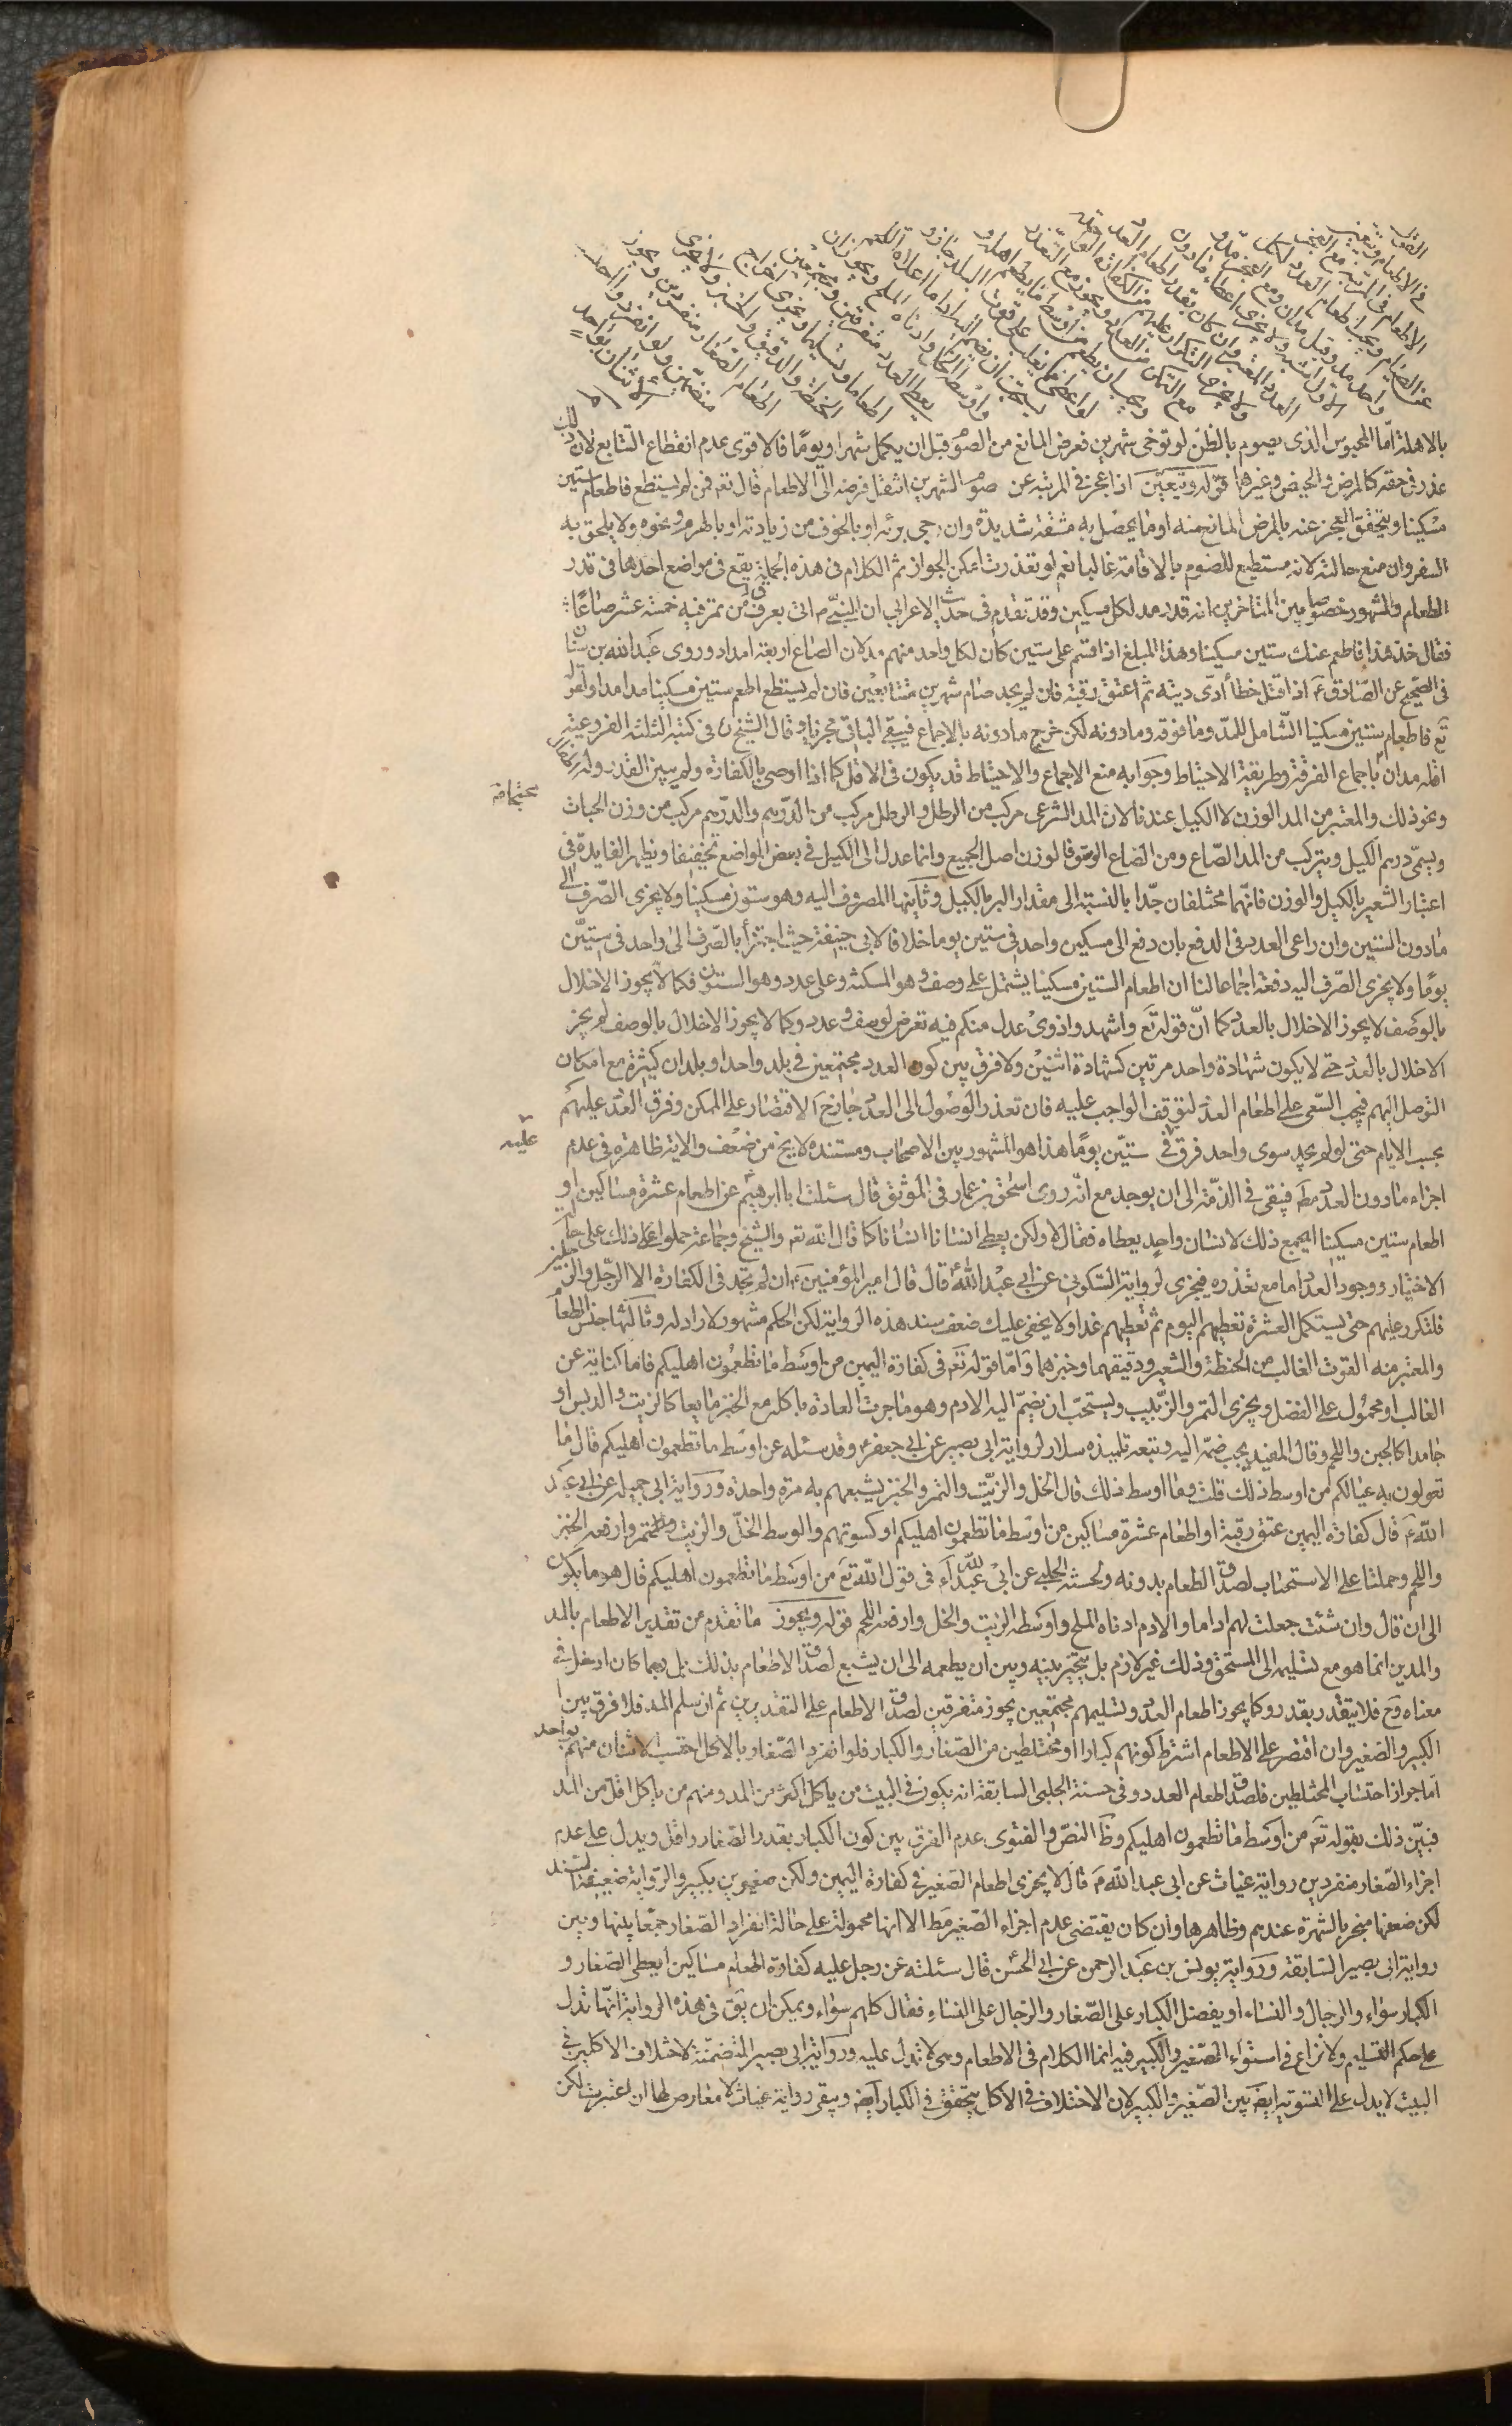 القول في الاطعام ويتعين
الاطعام في المرتبة مع العجز
عن الصيام ويجب اطعام العدد لكل
واحد مد وقيل مدان ومع العجز مد و
الاول اشبه ولا يجزى اعطاء ما دون
العدد المعتبر وان كان بقدر اطعام العدد
ولا يجوز التكرار عليهم من الكفارة الواحدة
مع التمكن من العدد ويجوز مع التعذر
ويجب ان يطعم من اوسط ما يطعم اهله و
لو اعطى مما يغلب على قوت البلد جاز و
يستحب ان يضم اليه اداما اعلاه اللحم
واوسطه الخل وادناه الملح ويجوز ان
يعطى العدد متفرقين ومجتمعين
اطعاما وتسليما ويجزى اخراج
الحنطة والدقيق والخبز ولا يجزى
اطعام الصغار منفردين ويجوز
منضمين ولو انفردوا احتسب
الاثنان بواحد
بالاهلة امّا المحبوس الذى يصوم بالظن لو توخى شهرين فعرض المانع من الصوم قبل ان يكمل شهرا ويومًا فالاقوى عدم انقطاع التتابع لان ذلك
عذر في حقه كالمرض والحيض وغيرها قوله ويتعين اذا عجز في المرتبة عن صوم الشهرين انتقل فرضه الى الاطعام قال تعه فمن لم يستطع فاطعام ستين
مسكينا ويتحقق العجز عنه بالمرض المانع منه او ما يحصل به مشقة شديدة وان رجى برئه او بالخوف من زيادته او بالهرم ونحوه ولا يلحق به
السفر وان منع حالته لانه مستطيع للصوم بالاقامة غالبا نعم لو تعذرت امكن الجواز ثم الكلام في هذه الجملة يقع في مواضع احدها في قدر
الطعام والمشهور خصوصا بين المتاخرين انه قدر مد لكل مسكين وقد تقدم في حديث الاعرابي ان النبي ص اتى بعرق من تمر فيه خمسة عشر صاعًا
فقال خذ هذا فاطعم عنك ستين مسكينا وهذا المبلغ اذا قسم على ستين كان لكل واحد منهم مد لان الصاع اربعة امداد وروى عبد الله بن سنان
في الصحيح عن الصادق ع اذا قتل خطأ ادّى ديته ثم اعتق رقبة فان لم يجد صام شهرين متتابعين فان لم يستطع اطعم ستين مسكينا مدا مدا ولقوله
تع فاطعام ستين مسكينا الشامل للمدّ وما فوقه وما دونه لكن خرج ما دونه بالاجماع فيبقى الباقي مجزيا وقال الشيخ ره في كتبه الثلثة الفروعية
اقله مدان باجماع الفرقة وطريقة الاحتياط وجوابه منع الاجماع والاحتياط قد يكون في الاقل كما اذا اوصى بالكفارة ولم يبين القدر وله
ونحو ذلك والمعتبر من المد الوزن لا الكيل عندنا لان المد الشرعى مركب من الرطل والرطل مركب من الدرهم والدرهم مركب من وزن الحبات
ويسمّى درهم الكيل ويتركب من المد الصاع ومن الصاع الوسق فالوزن اصل الجميع وانما عدل الى الكيل في بعض المواضع تخفيفا ويظهر الفايدة في
اعتبار الشعير بالكيل والوزن فانهما مختلفان جدّا بالنسبة الى مقدار البر بالكيل وثانيها المصروف اليه وهو ستون مسكينا ولا يجزى الصرف الى
ما دون الستين وان راعى العدد في الدفع بان دفع الى مسكين واحد في ستين يوما خلافا لابي حنيفة حيث اجتزأ بالصرف الى واحد في ستين
يومًا ولا يجزى الصرف اليه دفعة اجماعا لنا ان اطعام الستين مسكينا يشتمل على وصف وهو المسكنة وعلى عدد وهو الستون فكما لا يجوز الاخلال
بالوصف لا يجوز الاخلال بالعدد كما انّ قوله تعَ واشهدوا ذوى عدل منكم فيه تعرض لوصف وعدد وكما لا يجوز الاخلال بالوصف لم يجز
الاخلال بالعدد حتى لا يكون شهادة واحد مرتين كشهادة اثنين ولا فرق بين كون العدد مجتمعين في بلد واحد او بلدان كثيرة مع امكان
التوصل اليهم فيجب السعى على اطعام العدد لتوقف الواجب عليه فان تعذر الوصول الى العدد جاز ح الاقتصار على الممكن وفرق العدد عليهم
بحسب الايام حتى لو لم يجد سوى واحد فرق في ستين يومًا هذا هو المشهور بين الاصحاب ومستنده لا يخ من ضعف والاية ظاهرة في عدم
اجزاء ما دون العدد مط فيبقى في الذمة الى ان يوجد مع انّه روى اسحق بن عمار في الموثق قال سئلت ابا ابرهيم عن اطعام عشرة مساكين او
اطعام ستين مسكينا ايجمع ذلك لانسان واحد يعطاه فقال لا ولكن يعطى انسانا انسانا كما قال الله تعه والشيخ وجماعة حملوا على ذلك على حالة
الاختيار ووجود العدد اما مع تعذره فيجزى لرواية السكونى عن ابي عبد الله ع قال قال امير المؤمنين ع ان لم يجد في الكفارة الا الرجل والرجلين
فلتكرر عليهم حتى يستكمل العشرة تعطيهم اليوم ثم تعطيهم غدا ولا يخفى عليك ضعف سند هذه الرواية لكن الحكم مشهور لا راد له وثالثها جنس الطعام
والمعتبر منه القوت الغالب من الحنطة والشعير ودقيقهما وخبزهما وامّا قوله تعه في كفارة اليمين من اوسط ما تطعمون اهليكم فاما كناية عن
الغالب او محمول على الفضل ويجزى التمر والزبيب ويستحب ان يضمّ اليه الادم وهو ما جرت العادة باكله مع الخبز مايعا كالزيت والدبس او
جامدا كالجبن واللحم وقال المفيد يجب ضمّه اليه وتبعه تلميذه سلار لرواية ابى بصير عن ابى جعفر ع وقد سئله عن اوسط ما تطعمون اهليكم قال ما
تعولون به عيالكم من اوسط ذلك قلت وما اوسط ذلك قال الخل والزيت والتمر والخبز يشبعهم به مرة واحدة ورواية ابى جميلة عن ابى عبد
الله ع قال كفارة اليمين عتق رقبة او اطعام عشرة مساكين من اوسط ما تطعمون اهليكم او كسوتهم والوسط الخلّ والزيت وارفعه الخبز
واللحم وحملتا على الاستحباب لصدق الطعام بدونه ولحسنة الحلبى عن ابى عبد الله ع في قول الله تعَ من اوسط ما تطعمون اهليكم قال هو ما يكون
الى ان قال وان شئت جعلت لهم اداما والادم ادناه الملح واوسطه الزيت والخل وارفعه اللحم قوله ويجوز ما تقدم من تقدير الاطعام بالمد
والمدين انما هو مع تسليمه الى المستحق وذلك غير لازم بل يتخير بينه وبين ان يطعمه الى ان يشبع لصدق الاطعام بذلك بل ربما كان ادخل في
معناه وح فلا يتقدر بقدر وكما يجوز اطعام العدد وتسليمهم مجتمعين يجوز متفرقين لصدق الاطعام على التقديرين ثم ان سلم المد فلا فرق بين
الكبير والصغير وان اقتصر على الاطعام اشترط كونهم كبارا او مختلطين من الصغار والكبار فلو انفرد الصغار بالاكل احتسب الاثنان منهم بواحد
اما جواز احتساب المختلطين فلصدق اطعام العدد وفي حسنة الحلبى السابقة انه يكون في البيت من ياكل اكثر من المد ومنهم من ياكل اقل من المد
فبيّن ذلك بقوله تعه من اوسط ما تطعمون اهليكم وظ النصّ والفتوى عدم الفرق بين كون الكبار بقدر الصغار واقل ويدل على عدم
اجزاء الصغار منفردين رواية غياث عن ابى عبد الله ع قال لا يجزى اطعام الصغير في كفارة اليمين ولكن صغيرين بكبير والرواية ضعيفة السند
لكن ضعفها منجبر بالشهرة عندهم وظاهرها وان كان يقتضى عدم اجزاء الصغير مط الا انها محمولة على حالة انفراد الصغار جمعًا بينها وبين
رواية ابى بصير السابقة ورواية يونس بن عبد الرحمن عن ابى الحسن قال سئلته عن رجل عليه كفارة اطعام مساكين ايعطى الصغار و
الكبار سواء والرجال والنساء او يفضل الكبار على الصغار والرجال على النساء فقال كلهم سواء ويمكن ان يق في هذه الرواية انّها تدل
على حكم التسليم ولا نزاع في استواء الصغير والكبير فيه انما الكلام في الاطعام وهى لا تدل عليه ورواية ابى بصير المتضمنة لاختلاف الاكل في
البيت لا يدل على التسوية ايضَ بين الصغير والكبير لان الاختلاف في الاكل يتحقق في الكبار ايضَ ويبقى رواية غياث لا معارض لها ان اعتبرت لكن